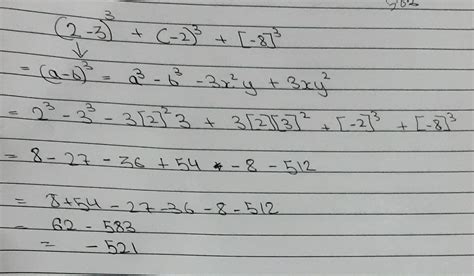 (2-3)³ + (-2)³ + [-8]³
↓
= (a-b)³ = a³ - b³ - 3x²y + 3xy²
= 2³ - 3³ - 3[2]²3 + 3[2][3]² + [-2]³ + [-8]³
= 8 - 27 - 36 + 54 - 8 - 512
= 8+54 - 27-36 - 8 - 512
= 62 - 583
= - 521